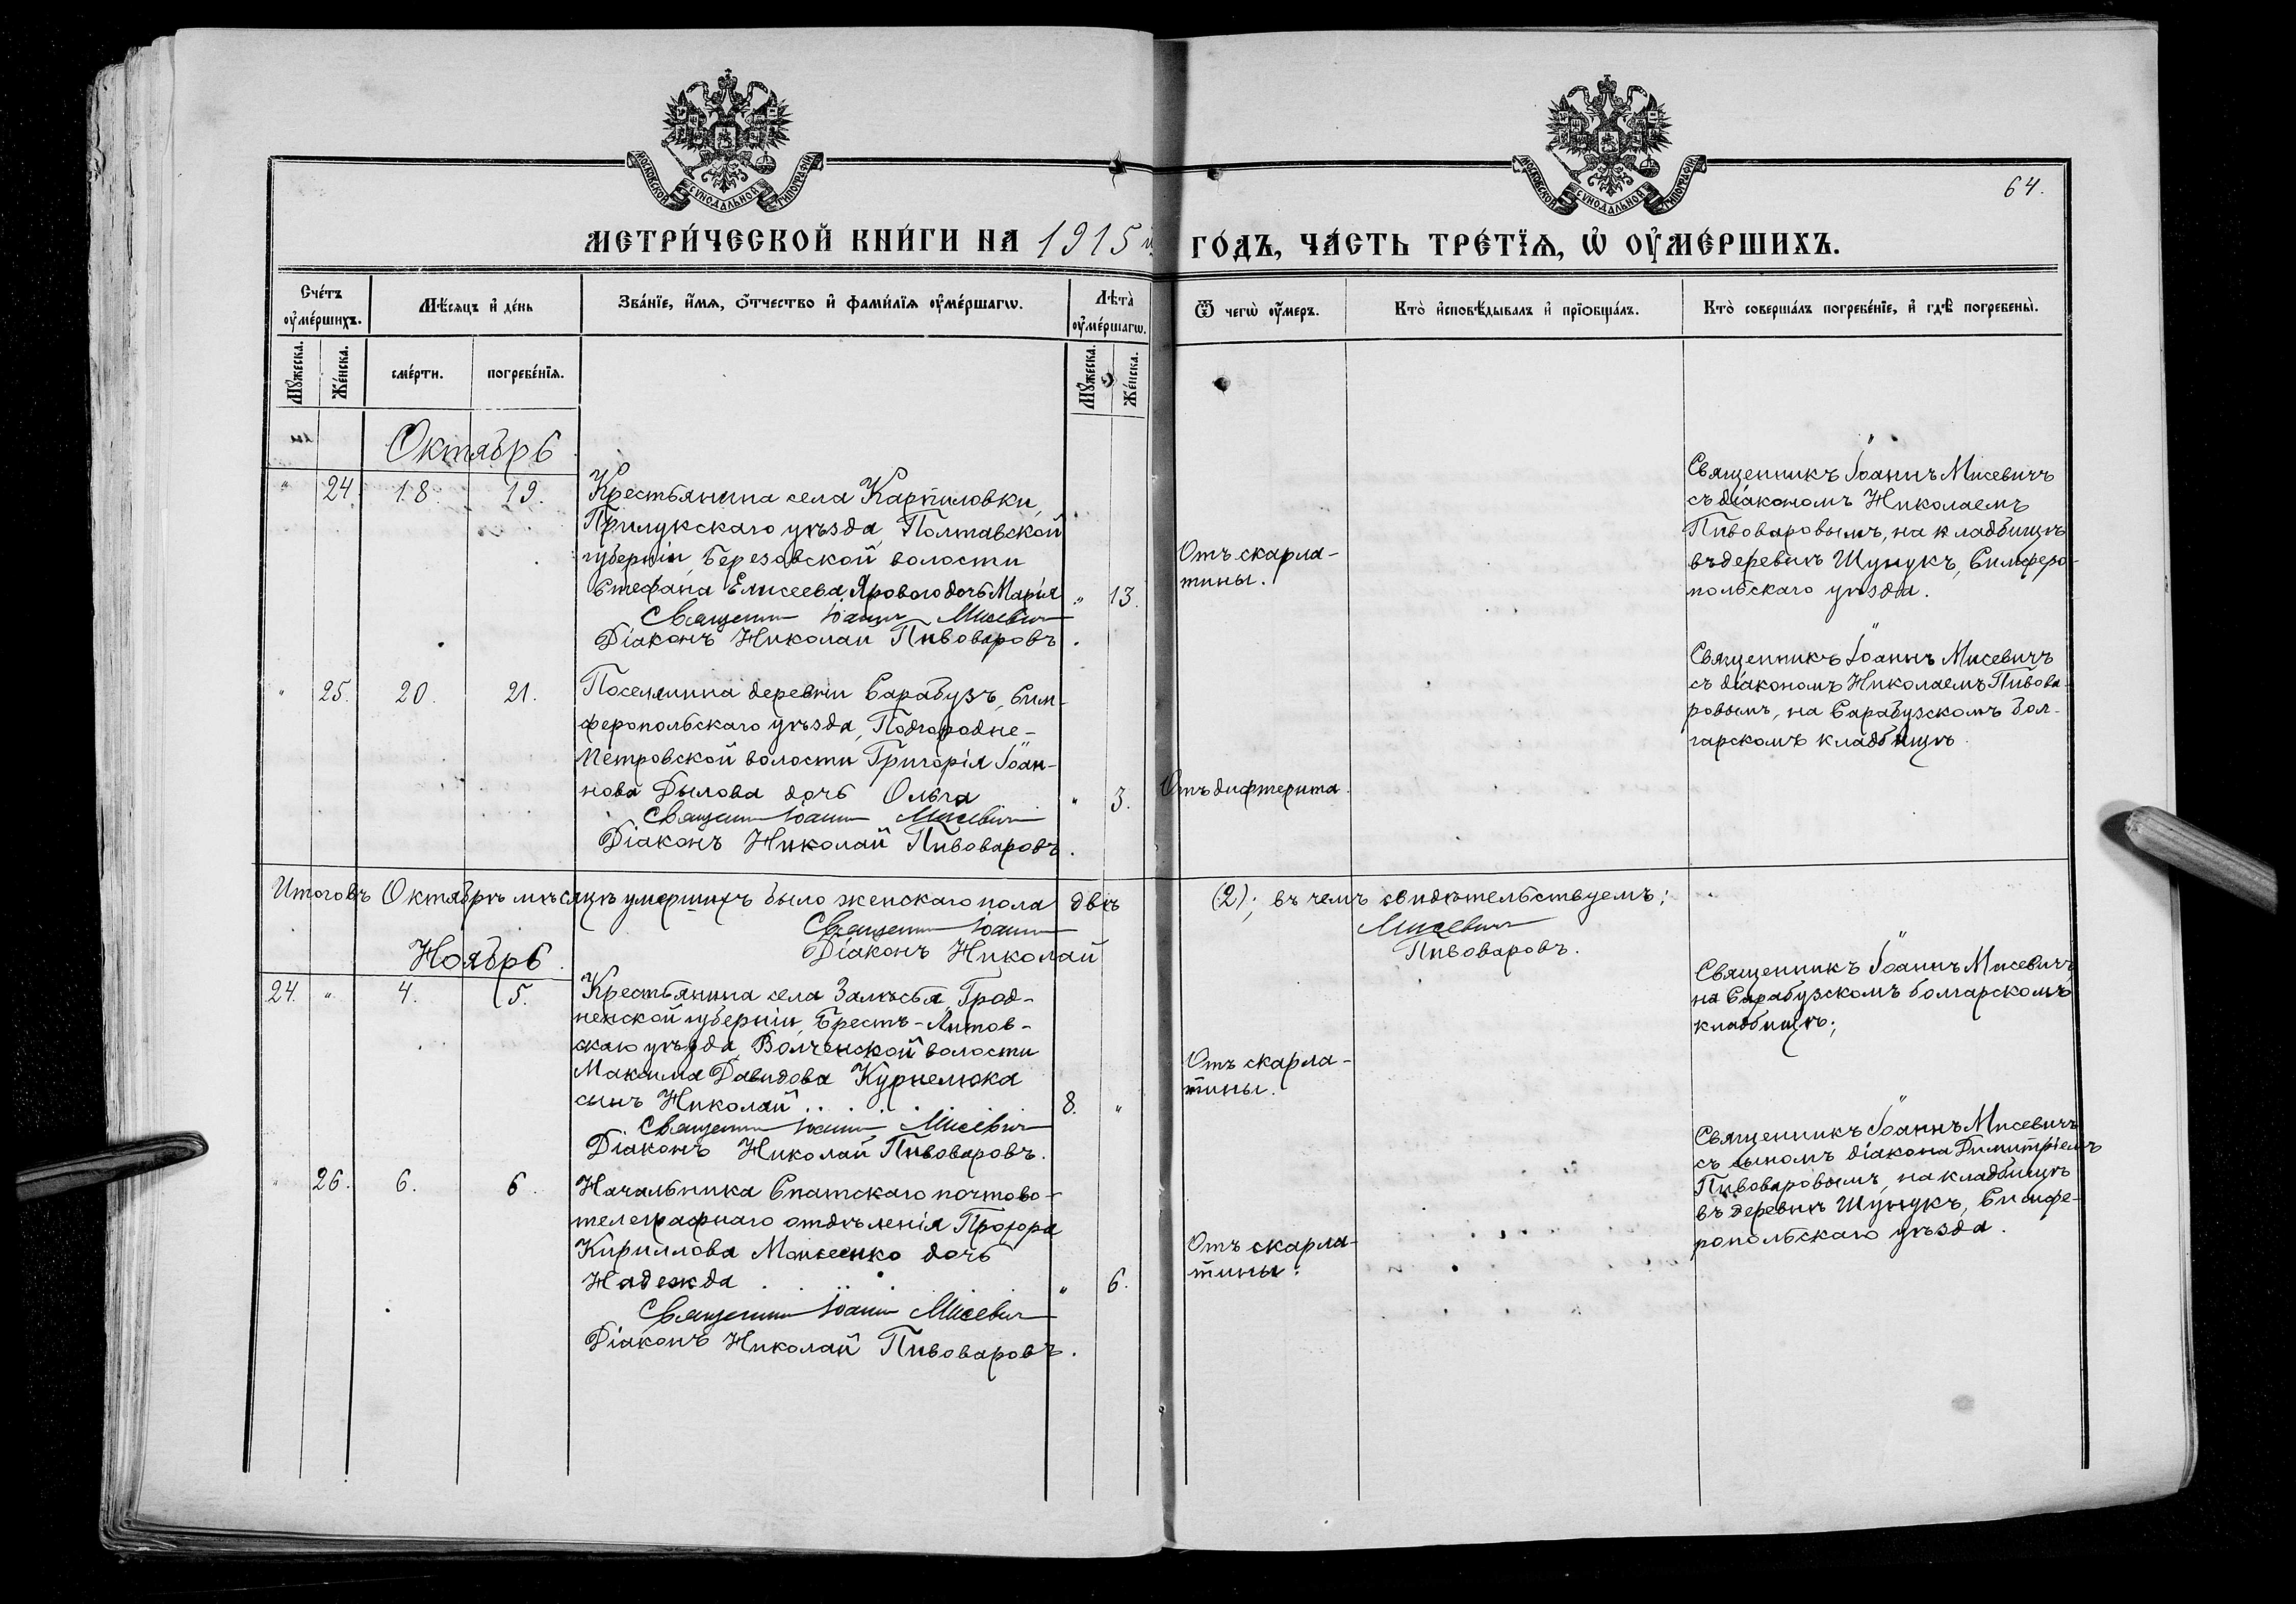 МОСКОВСКОЙ СѴНОДАЛЬНОЙ ТИПОГРАФІИ
МОСКОВСКОЙ СѴНОДАЛЬНОЙ ТИПОГРАФІИ
64.
МЕТРИ́ЧЕСКОЙ КНИ́ГИ НА 1915й ГО́ДЪ, ЧА́СТЬ ТРЕ́ТІѦ, Ѡ҆ ОУ҆МЕ́РШИХЪ.
Сче́тъ оу҆ме́ршихъ.
Мѣ́сяцъ и҆ де́нь
Зва́нїе, и҆́мѧ, ѻ҆́тчество и҆ фами́лїѧ оу҆ме́ршагѡ.
Лѣ́та оу҆ме́ршагѡ.
Ѿ чегѡ̀ оу҆́меръ.
Кто̀ и҆сповѣ́дывалъ и҆ прїѻбща́лъ.
Кто̀ соверша́лъ погребе́нїе, и҆ гдѣ̀ погребены̀.
Мꙋ́жеска.
Же́нска.
сме́рти.
погребе́нїѧ.
Мꙋ́жеска.
Же́нска.
Октябрь
" 24. 18. 19.
Крестьянина села Карпиловки,
Прилукскаго уѣзда, Полтавской
губерніи, Березовской волости
Стефана Елисеева Ярового дочь Марія " 13.
Священникъ Іоаннъ Мисевичъ
Діаконъ Николай Пивоваровъ.
Отъ скарла-
тины.
Священникъ Іоаннъ Мисевичъ
съ діакономъ Николаемъ
Пивоваровымъ, на кладбищѣ
въ деревнѣ Шунукъ, Симферо-
польскаго уѣзда.
" 25. 20. 21.
Поселянина деревни Сарабузъ, Сим-
феропольскаго уѣзда, Подгородне-
Петровской волости Григорія Іоан-
нова Дылова дочь Ольга " 3.
Священникъ Іоаннъ Мисевичъ
Діаконъ Николай Пивоваровъ.
Отъ дифтерита.
Священникъ Іоаннъ Мисевичъ
съ діакономъ Николаемъ Пивова-
ровымъ, на Сарабузскомъ бол-
гарскомъ кладбищѣ
Итого въ Октябрѣ мѣсяцѣ умершихъ было женскаго пола двѣ (2); въ чемъ свидѣтельствуемъ:
Священникъ Іоаннъ Мисевичъ
Діаконъ Николай Пивоваровъ.
Ноябрь
24. " 4. 5.
Крестьянина села Залѣсья, Грод-
ненской губерніи, Брестъ-Литов-
скаго уѣзда, Волченской волости
Максима Давидова Курнелюка
сынъ Николай . . . . . 8. "
Священникъ Іоаннъ Мисевичъ
Діаконъ Николай Пивоваровъ.
Отъ скарла-
тины.
Священникъ Іоаннъ Мисевичъ
на Сарабузскомъ болгарскомъ
кладбищѣ;
" 26. 6. 6.
Начальника Спатскаго почтово-
телеграфнаго отдѣленія Прохора
Кириллова Моисеенко дочь
Надежда . . . . " 6.
Священникъ Іоаннъ Мисевичъ
Діаконъ Николай Пивоваровъ.
Отъ скарла-
тины.
Священникъ Іоаннъ Мисевичъ
съ сыномъ діакона Димитріемъ
Пивоваровымъ, на кладбищѣ
въ деревнѣ Шунукъ, Симфе-
ропольскаго уѣзда.